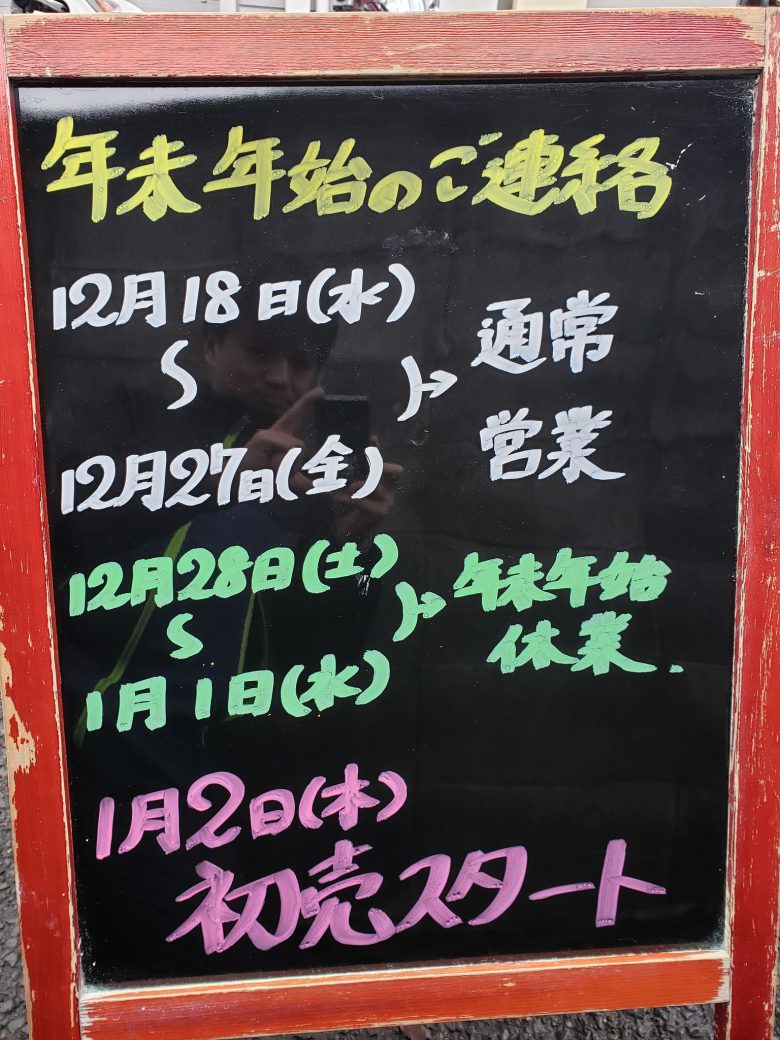 年末年始のご連絡
12月18日(水)
〜
12月27日(金)
→通常
営業
12月28日(土)
〜
1月1日(水)
→年末年始
休業.
1月2日(木)
初売スタート